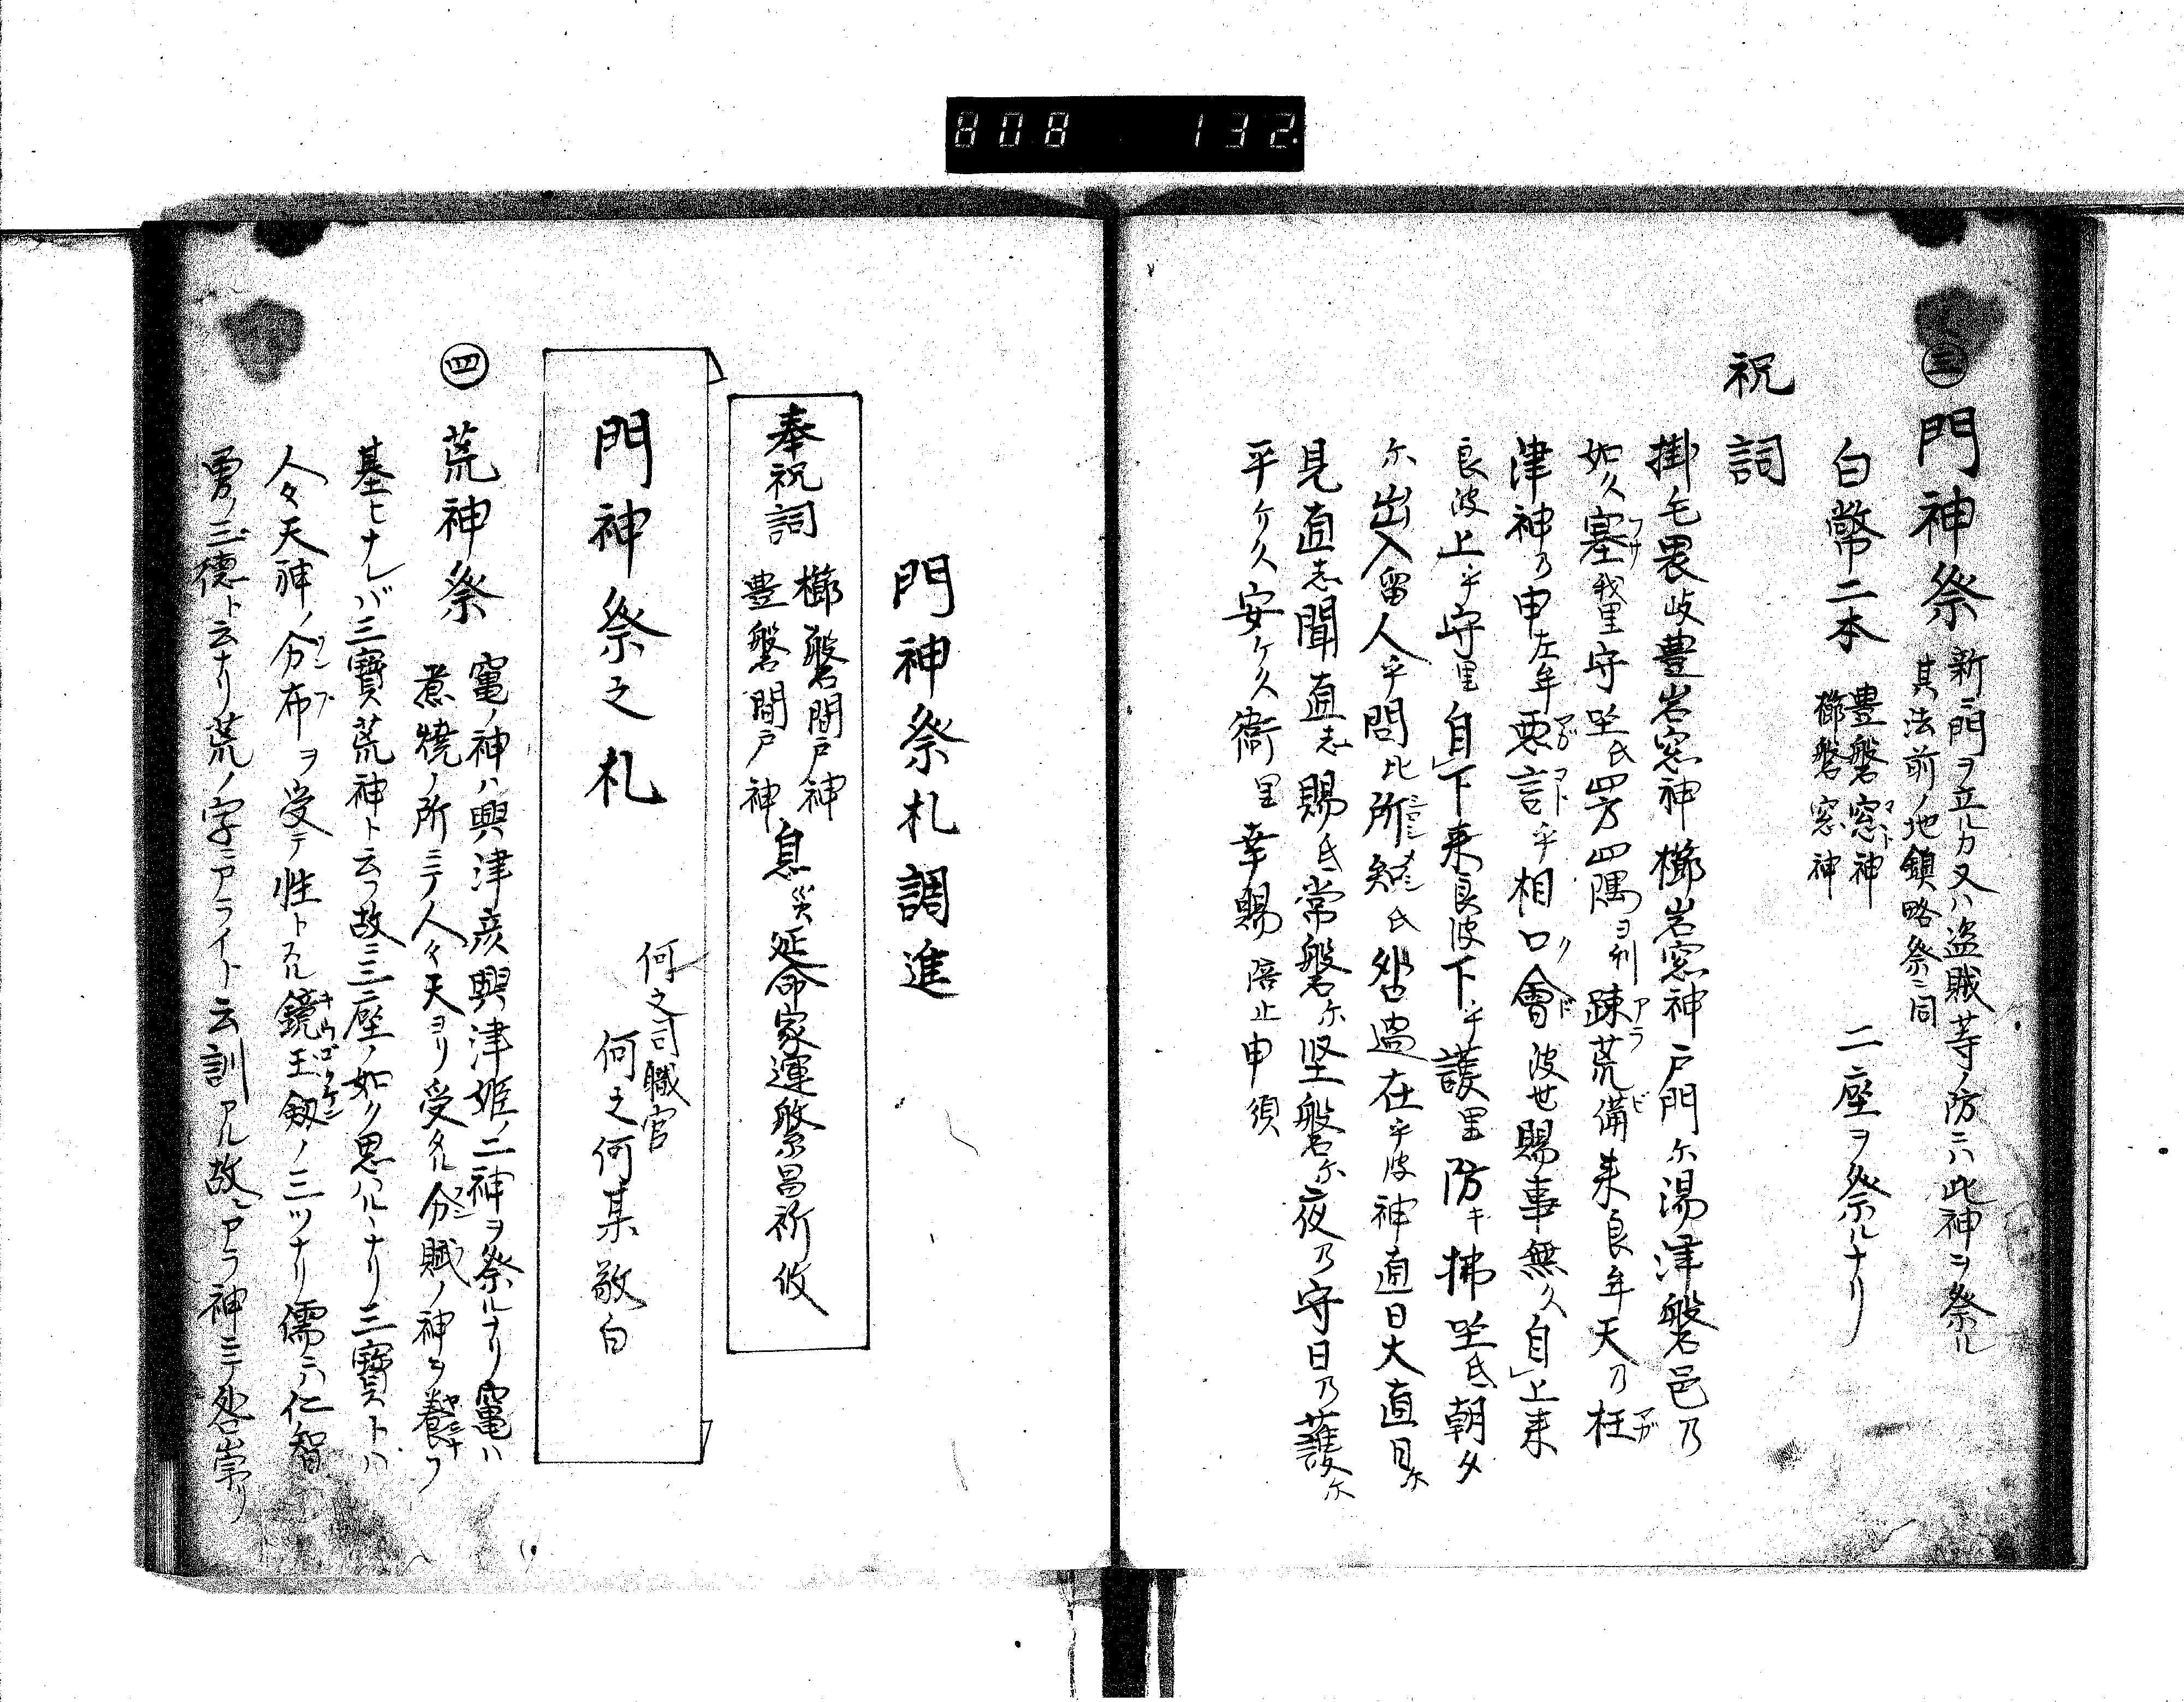 808 132.
㊂ 門神祭 新ニ門ヲ立ルカ又ハ盗賊等ノ防ニハ此神ヲ祭ル
其法前ノ地鎮略祭ニ同
白幣二本 豊磐窓神 櫛磐窓神 二座ヲ祭ルナリ
祝詞
掛毛畏岐豊岩窓神櫛岩窓神戸門尓湯津磐邑乃
如久塞我里守坐氐四方四隅ヨ利疎荒備来良牟天乃枉
津神乃申左牟悪言乎相口會波世賜事無久自上来
良波上乎守里自下来良波下乎護里防キ拂坐氐朝夕
尓出入留人乎問比所知氐咎過在乎波神直日大直日尓
見直志聞直志賜氐常磐尓坚磐尓夜乃守日乃護尓
平ケク久安ケク久衛里幸賜陪止申須
門神祭札調進
奉祝詞 櫛磐間戸神 豊磐間戸神 息災延命家運繁昌祈攸
門神祭之札
何之司職官
何之何某敬白
㊃ 荒神祭 竃ノ神ハ興津彦興津姫ノ二神ヲ祭ルナリ竃ハ
煮焼ノ所ニテ人々天ヨリ受タル分賦ノ神ヲ養フ
基ヒナレバ三寶荒神ト云フ故ニ三座ノ如ク思ハルヽナリ三寶トハ
人々天神ノ分布ヲ受テ性トスル鏡玉劔ノ三ツナリ儒ニハ仁智
勇ノ三德ト云ナリ荒ノ字ニアライト云訓アル故ニアラ神ニテ咎祟リ